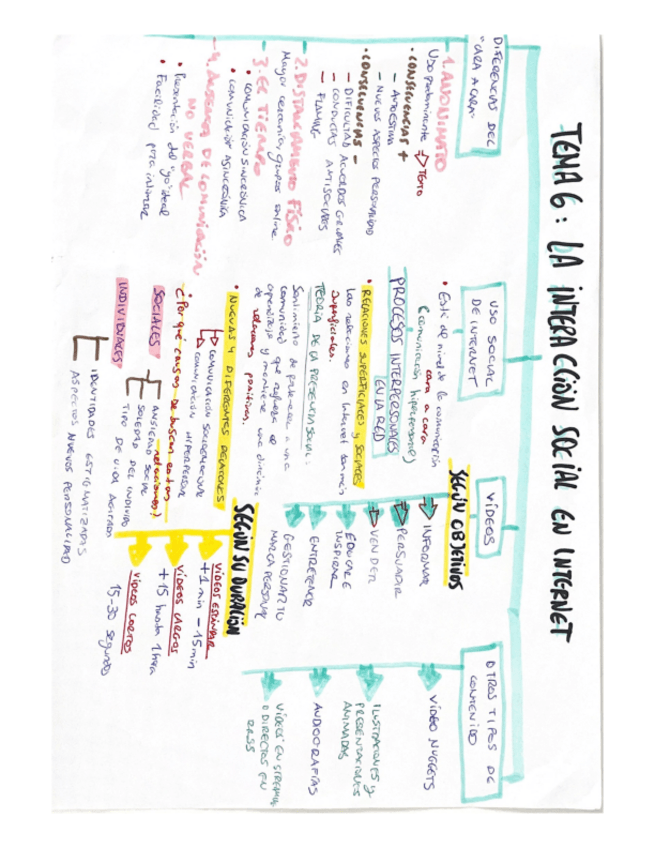 TEMA 6: LA INTERACCIÓN SOCIAL EN INTERNET
DIFERENCIAS DEL
"CARA A CARA"
1. ANONIMATO
Uso predominante → TEXTO
• CONSECUENCIAS +
– AUTOESTIMA
– NUEVOS ASPECTOS PERSONALIDAD
• CONSECUENCIAS –
– DIFICULTAD ACUERDOS GRUPALES
– CONDUCTAS ANTISOCIALES
– FLAMING
2. DISTANCIAMIENTO FÍSICO
Mayor cercanía, grupos online
3. EL TIEMPO
• COMUNICACIÓN SINCRÓNICA
• COMUNICACIÓN ASINCRÓNICA
4. AUSENCIA DE COMUNICACIÓN
NO VERBAL
• Presentación del "yo" ideal
• Facilidad para intimar
USO SOCIAL
DE INTERNET
• Está al nivel de la comunicación
cara a cara
(comunicación hiperpersonal)
PROCESOS INTERPERSONALES
EN LA RED
• RELACIONES SUPERFICIALES Y SOCIALES
Las relaciones en Internet son más
superficiales.
TEORÍA DE LA PRESENCIA SOCIAL:
Sentimiento de pertenecer a una
comunidad que refuerza el
aprendizaje y mantiene una dinámica
de relaciones positivas.
• NUEVAS Y DIFERENTES RELACIONES
→ COMUNICACIÓN SOCIOEMOCIONAL
→ COMUNICACIÓN HIPERPERSONAL
¿Por qué causas se buscan estas
relaciones?
SOCIALES
ANSIEDAD SOCIAL
SOLEDAD DEL INDIVIDUO
TIPO DE VIDA AGITADA
INDIVIDUALES
IDENTIDADES ESTIGMATIZADAS
ASPECTOS NUEVOS PERSONALIDAD
VIDEOS
SEGÚN OBJETIVOS
INFORMAR
PERSUADIR
VENDER
EDUCAR E
INSPIRAR
ENTRETENER
GESTIONAR TU
MARCA PERSONAL
SEGÚN SU DURACIÓN
VIDEOS ESTÁNDAR
+ 1 min – 15 min
VIDEOS LARGOS
+ 15 hasta 1 hora
VIDEOS CORTOS
15 - 30 segundos
OTROS TIPOS DE
CONTENIDO
VIDEO NUGGETS
ILUSTRACIONES Y
PRESENTACIONES
ANIMADAS
AUDIOGRAFÍAS
VIDEOS EN STREAMING
O DIRECTOS EN
RRSS